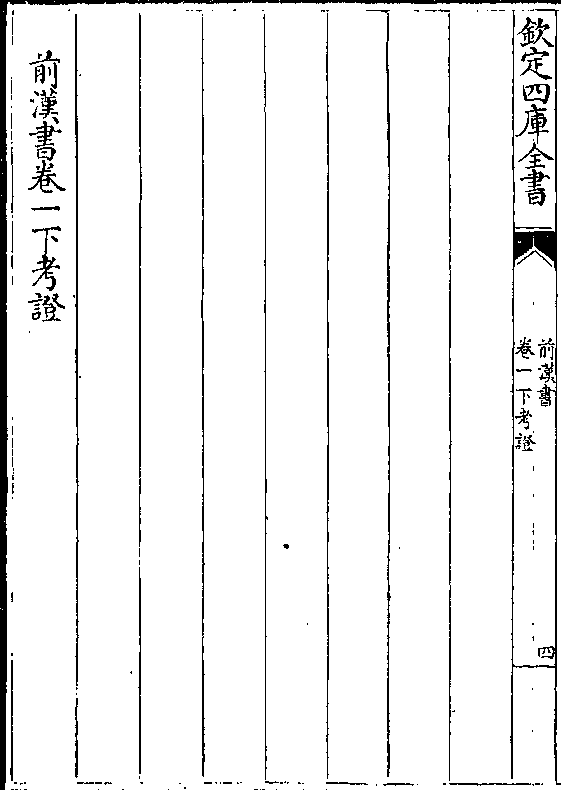 欽定四庫全書
前漢書
卷一下考證
四
前漢書卷一下考證